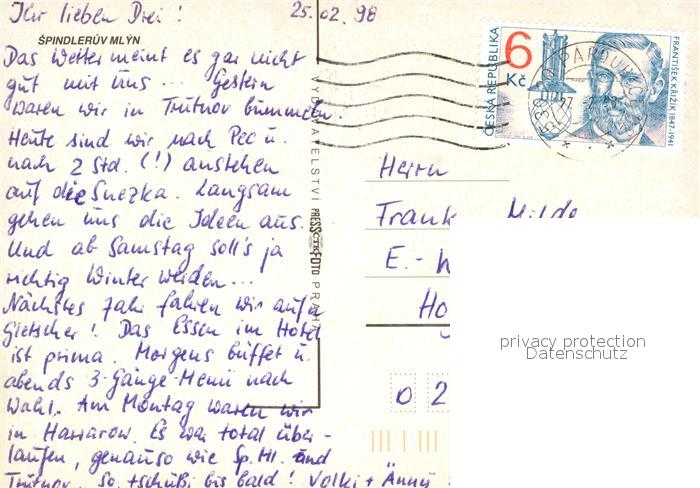 Ihr lieben Drei! 25.02.98
ŠPINDLERŮV MLÝN
Das Wetter meint es gar nicht
gut mit uns... Gestern
waren wir in Trutnov bummeln.
Heute sind wir nach Pec u.
nach 2 Std. (!) anstehen
auf die Snezka. Langsam
gehen uns die Ideen aus.
Und ab Samstag soll's ja
richtig Winter werden...
Nächstes Jahr fahren wir auf'n
Gletscher! Das Essen im Hotel
ist prima. Morgens büffet u.
abends 3-Gänge-Menü nach
Wahl. Am Montag waren wir
in Harrarow. Es war total über-
laufen, genauso wie Sp. Ml. und
Trutnov. So, tschüßi bis bald! Volki + Änni
VYDAVATELSTVÍ PRESSFOTO PRAHA
ČESKÁ REPUBLIKA
6
Kč
FRANTIŠEK KŘIŽÍK 1847-1941
Herrn
Frank Milde
E.-W
Ho
0 2
privacy protection
Datenschutz